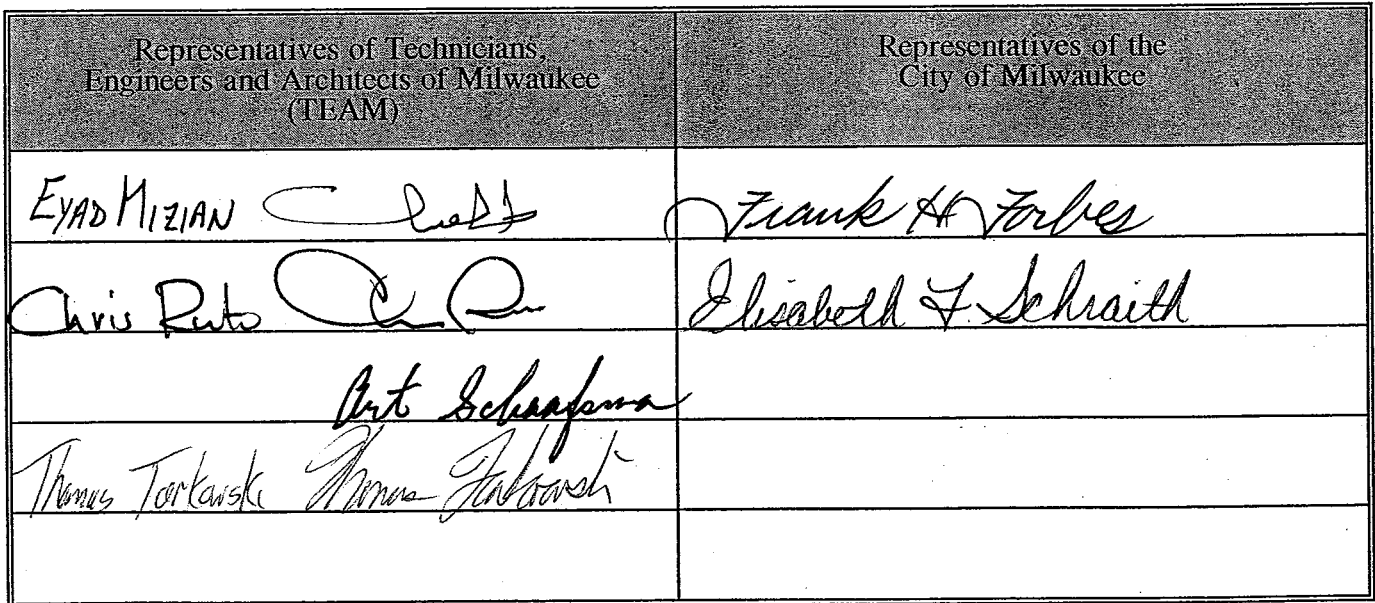 Representatives of Technicians,
Engineers and Architects of Milwaukee
(TEAM)
Representatives of the
City of Milwaukee
EYAD MIZIAN
Frank H Forbes
Chris Ruto
Elisabeth F Schraith
Art Schaafsma
Thomas Thomas